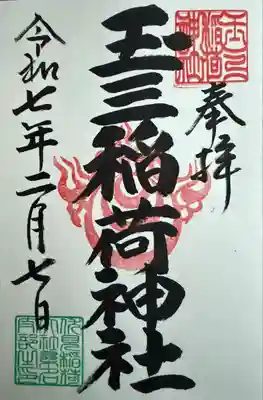 奉拝
玉三稲荷神社
令和七年二月七日